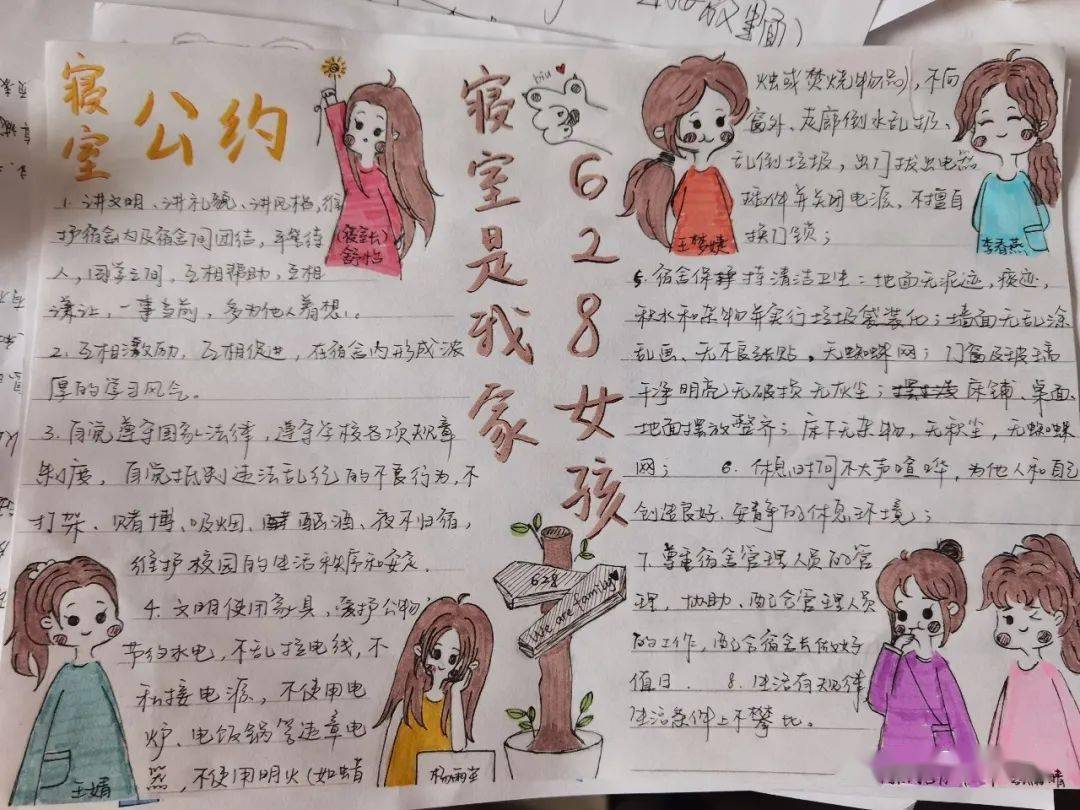 寝室
公约
1. 讲文明、讲礼貌、讲风格,维
护宿舍内及宿舍间团结,平等待
人,同学之间,互相帮助,互相
谦让,一事当前,多为他人着想。
2. 互相激励,互相促进,在宿舍内形成浓
厚的学习风气。
3. 自觉遵守国家法律,遵守学校各项规章
制度,自觉抵制违法乱纪的不良行为,不
打架、赌博、吸烟、酗酒、夜不归宿,
维护校园的生活秩序和安定.
4. 文明使用家具,爱护公物,
节约水电,不乱拉电线,不
私接电源,不使用电
炉、电饭锅等违章电
器,不使用明火(如蜡
(寝室长)
舒怡
王娟
寝室是我家
biu
628女孩
628
We are family
王梦婕
李春燕
烛或焚烧物品),不向
窗外、走廊倒水乱扔、
乱倒垃圾,出门拔出电器
插件并关闭电源,不擅自
换门锁;
5. 宿舍保持清洁卫生:地面无泥迹,痰迹,
积水和杂物并实行垃圾袋装化;墙面无乱涂
乱画、无不良张贴,无蜘蛛网;门窗及玻璃
干净明亮无破损无灰尘;床铺、桌面、
地面摆放整齐;床下无杂物,无积尘,无蜘蛛
网; 6. 休息时间不大声喧哗,为他人和自己
创造良好、安静的休息环境;
7. 尊重宿舍管理人员的管
理,协助、配合管理人员
的工作,配合宿舍长做好
值日. 8. 生活有规律,
生活条件上不攀比。